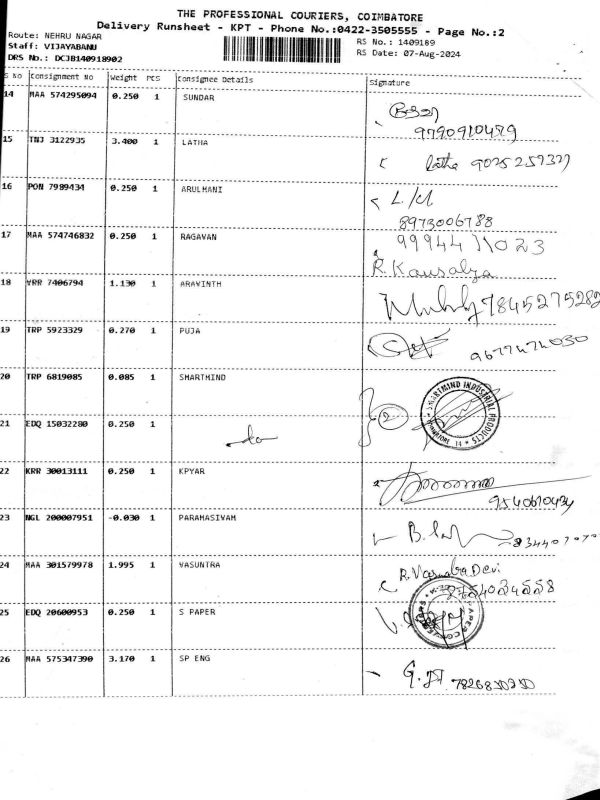 THE PROFESSIONAL COURIERS, COIMBATORE
Delivery Runsheet - KPT - Phone No.:0422-3505555 - Page No.:2
Route: NEHRU NAGAR
Staff: VIJAYABANU
DRS No.: DCJB140918902
RS No.: 1409189
RS Date: 07-Aug-2024
S No Consignment No Weight PCS Consignee Details Signature
14 MAA 574295094 0.250 1 SUNDAR
9790910479
15 TNJ 3122935 3.400 1 LATHA latha 9025257327
16 PON 7989434 0.250 1 ARULMANI
8973006788
17 MAA 574746832 0.250 1 RAGAVAN 9994411023
R. Kausalya
18 VRR 7406794 1.130 1 ARAVINTH 7845275282
19 TRP 5923329 0.270 1 PUJA 9677474030
20 TRP 6819085 0.085 1 SMARTMIND
SMARTMIND INDUSTRIAL PRODUCTS
2
21 EDQ 15032280 0.250 1
22 KRR 30013111 0.250 1 KPYAR
9540610434
23 NGL 200007951 -0.030 1 PARAMASIVAM
24 MAA 301579978 1.995 1 VASUNTRA R. Vasundra Devi
25 EDQ 20600953 0.250 1 S PAPER
26 MAA 575347390 3.170 1 SP ENG